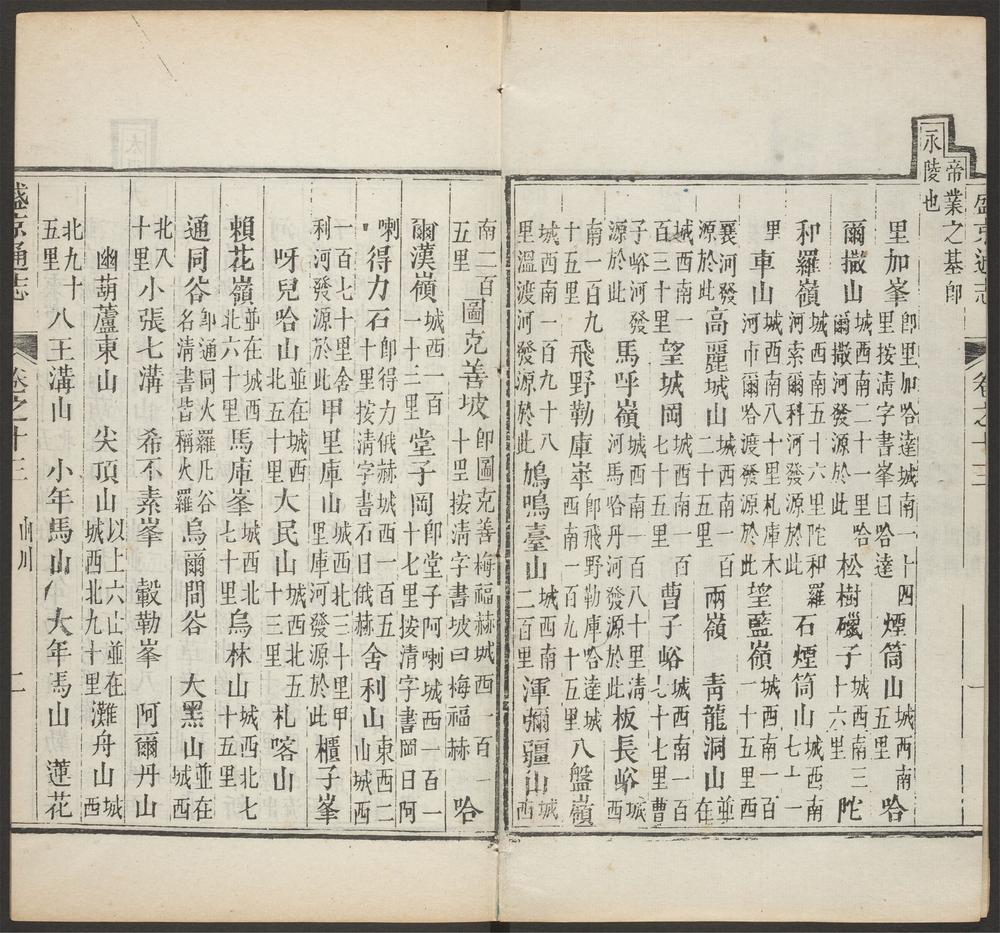 盛京通志 卷之十三 一
帝業之基即永陵也
里加峯即里加哈達城南一十四里按淸字書峯曰哈達 煙筒山城西南五里 哈
爾撒山城西南二十一里哈爾撒河發源於此 松樹礮子城西南三十六里 陀
和羅嶺城西南五十六里陀和羅河索爾科河發源於此 石煙筒山城西南七十一
里 車山城西南八十里札庫木河市爾哈渡發源於此 望藍嶺城西南一百一十五里西
襄河發源於此 高麗城山城西南一百二十五里 兩嶺 靑龍洞山並在
城西南一百三十里 望城岡城西南一百七十五里 曹子峪城西南一百七十七里曹
子峪河發源於此 馬呼嶺城西南一百八十里淸河馬哈丹河發源於此 板長峪城西
南一百九十五里 飛野勒庫峯即飛野勒庫哈達城西南一百九十五里 八盤嶺
城西南一百九十八里溫渡河發源於此 鳩鳴臺山城西南二百里 渾彌疆山城西
南二百五里 圖克善坡即圖克善梅福赫城西一百一十里按淸字書坡曰梅福赫 哈
爾漢嶺城西一百一十二里 堂子岡即堂子阿喇城西一百一十七里按清字書岡曰阿
喇 得力石即得力俄赫城西一百五十里按淸字書石曰俄赫 舍利山東西二山城西
一百七十里舍利河發源於此 甲里庫山城西北三十里甲里庫河發源於此 櫃子峯
呀兒哈山並在城西北五十里 大民山城西北五十三里 札喀山
賴花嶺並在城西北六十里 馬庫峯城西北七十里 烏林山城西北七十五里
通同谷即通同火羅凡谷名淸書皆稱火羅 烏爾間谷 大黑山並在城西
北八十里 小張七溝 希不素峯 轂勒峯 阿爾丹山
幽葫蘆東山 尖頂山以上六山並在城西北九十里 灘舟山城西
北九十五里 八王溝山 小年馬山 大年馬山 蓮花
盛京通志 卷之十三 山川 二